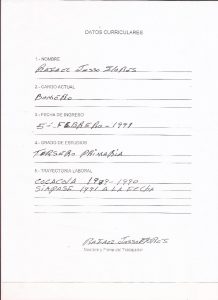 DATOS CURRICULARES
1.- NOMBRE
RAFAEL JASSO FLORES
2.- CARGO ACTUAL
BOMBERO
3.- FECHA DE INGRESO
5 - FEBRERO - 1991
4.- GRADO DE ESTUDIOS
TERSERO PRIMARIA
5.- TRAYECTORIA LABORAL
COCACOLA 1989-1990
SIAPASE 1991 A LA FECHA
RAFAEL JASSO FLORES
Nombre y Firma del Trabajador